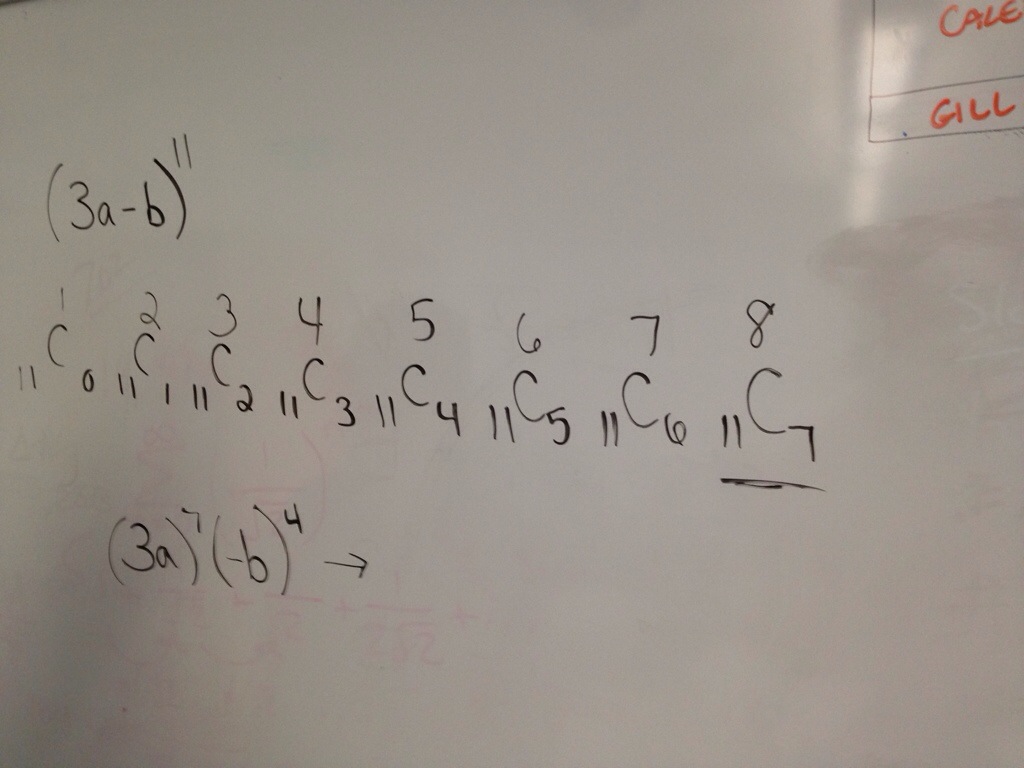 CALE
GILL
(3a-b)^11
1 2 3 4 5 6 7 8
₁₁C₀ ₁₁C₁ ₁₁C₂ ₁₁C₃ ₁₁C₄ ₁₁C₅ ₁₁C₆ ₁₁C₇
(3a)^7(-b)^4 →